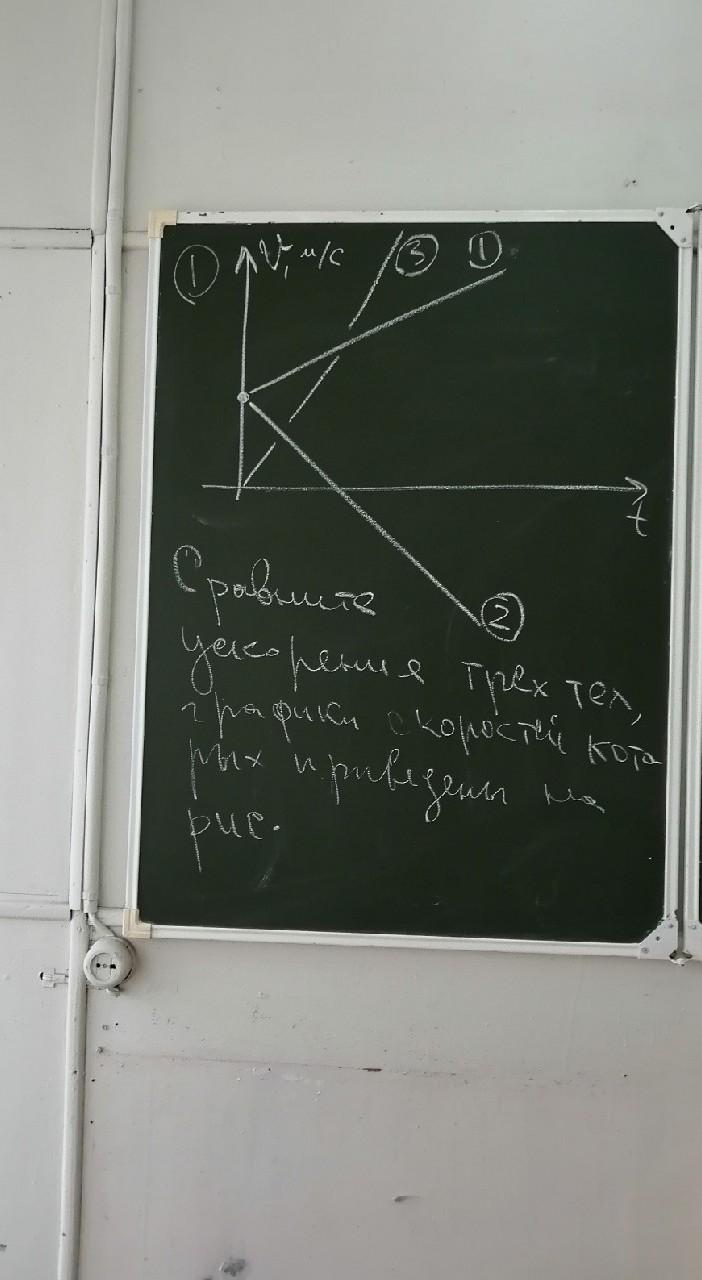 ① V, м/с ③ ①
t
②
Сравните
ускорения трех тел,
графики скоростей кото
рых приведены на
рис.